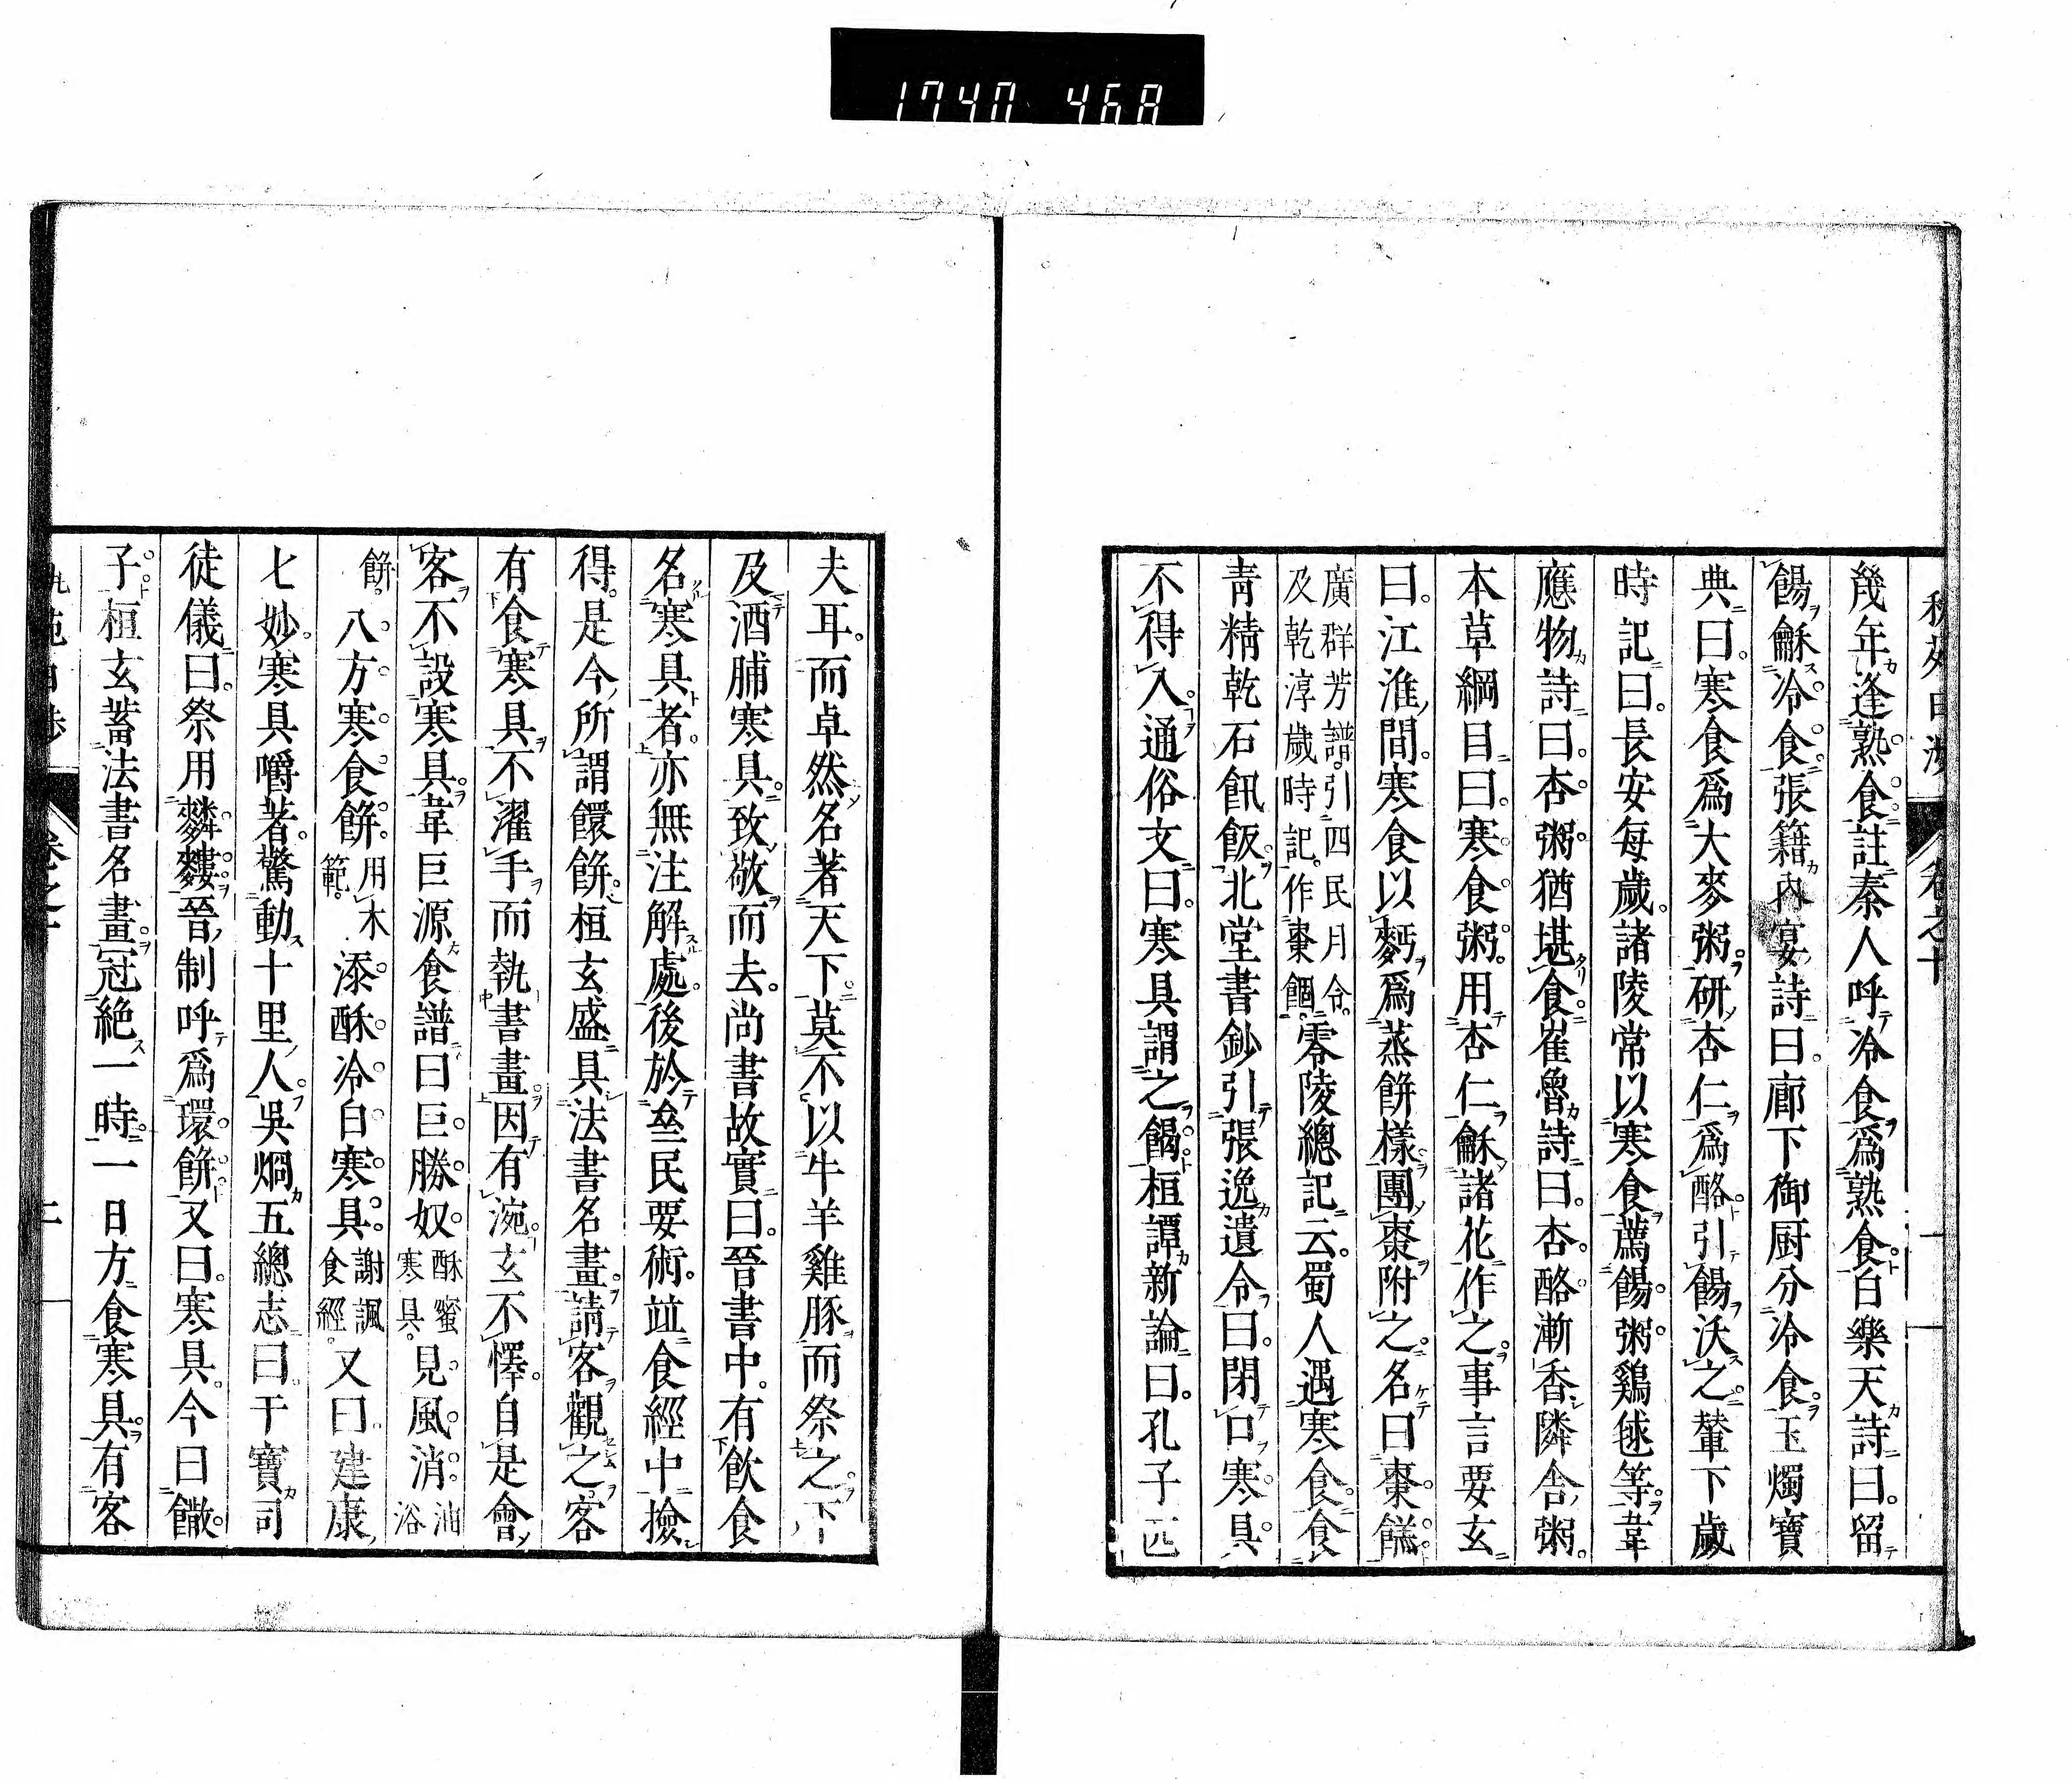 1740 468
幾年逢熟食註秦人呼冷食爲熟食白樂天詩曰留
餳龢冷食張籍內宴詩曰廊下御厨分冷食玉燭寶
典曰寒食爲大麥粥研杏仁爲酪引餳沃之輦下歲
時記曰長安每歲諸陵常以寒食薦餳粥鷄毬等韋
應物詩曰杏粥猶堪食崔魯詩曰杏酪漸香隣舍粥
本草綱目曰寒食粥用杏仁龢諸花作之事言要玄
曰江淮間寒食以麪爲蒸餅樣團棗附之名曰棗餻
廣群芳譜引四民月令
及乾淳歲時記作棗䭅零陵總記云蜀人遇寒食食
青精乾石飢飯北堂書鈔引張逸遺令曰閉口寒具
不得入通俗文曰寒具謂之餲桓譚新論曰孔子匹
卷之十
夫耳而卓然名著天下莫不以牛羊雞豚而祭之下
及酒脯寒具致敬而去尚書故實曰晉書中有飲食
名寒具者亦無注解處後於叁民要術並食經中撿
得是今所謂饌餅桓玄盛具法書名畫請客觀之客
有食寒具不濯手而執書畫因有涴玄不懌自是會
客不設寒具韋巨源食譜曰巨勝奴酥蜜寒具見風消油浴
餅八方寒食餅用木範添酥冷白寒具謝諷食經又曰建康
七妙寒具嚼著驚動十里人吳烱五總志曰干寶司
徒儀曰祭用䴪䴹晉制呼爲環餅又曰寒具今曰饊
子桓玄蓄法書名畫冠絶一時一日方食寒具有客
二